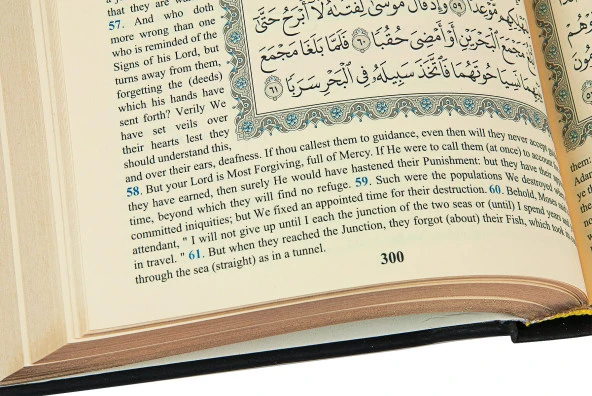 that they are
57. And who doth
more wrong than one
who is reminded of the
Signs of his Lord, but
turns away from them,
forgetting the (deeds)
which his hands have
sent forth? Verily We
have set veils over
their hearts lest they
should understand this,
and over their ears, deafness. If thou callest them to guidance, even then will they never accept
58. But your Lord is Most Forgiving, full of Mercy. If He were to call them (at once) to account
they have earned, then surely He would have hastened their Punishment: but they have their
time, beyond which they will find no refuge. 59. Such were the populations We destroyed
committed iniquities; but We fixed an appointed time for their destruction. 60. Behold, Moses
attendant, " I will not give up until I each the junction of the two seas or (until) I spend years and
in travel. " 61. But when they reached the Junction, they forgot (about) their Fish, which took
through the sea (straight) as in a tunnel.
300
لِمَهْلِكِهِم مَّوْعِدًا ٥٩ وَإِذْ قَالَ مُوسَىٰ لِفَتَىٰهُ لَا أَبْرَحُ حَتَّىٰ
مَجْمَعَ الْبَحْرَيْنِ أَوْ أَمْضِيَ حُقُبًا ٦٠ فَلَمَّا بَلَغَا مَجْمَعَ
بَيْنِهِمَا نَسِيَا حُوتَهُمَا فَاتَّخَذَ سَبِيلَهُ فِي الْبَحْرِ سَرَبًا ٦١
them:
Adam
ye th